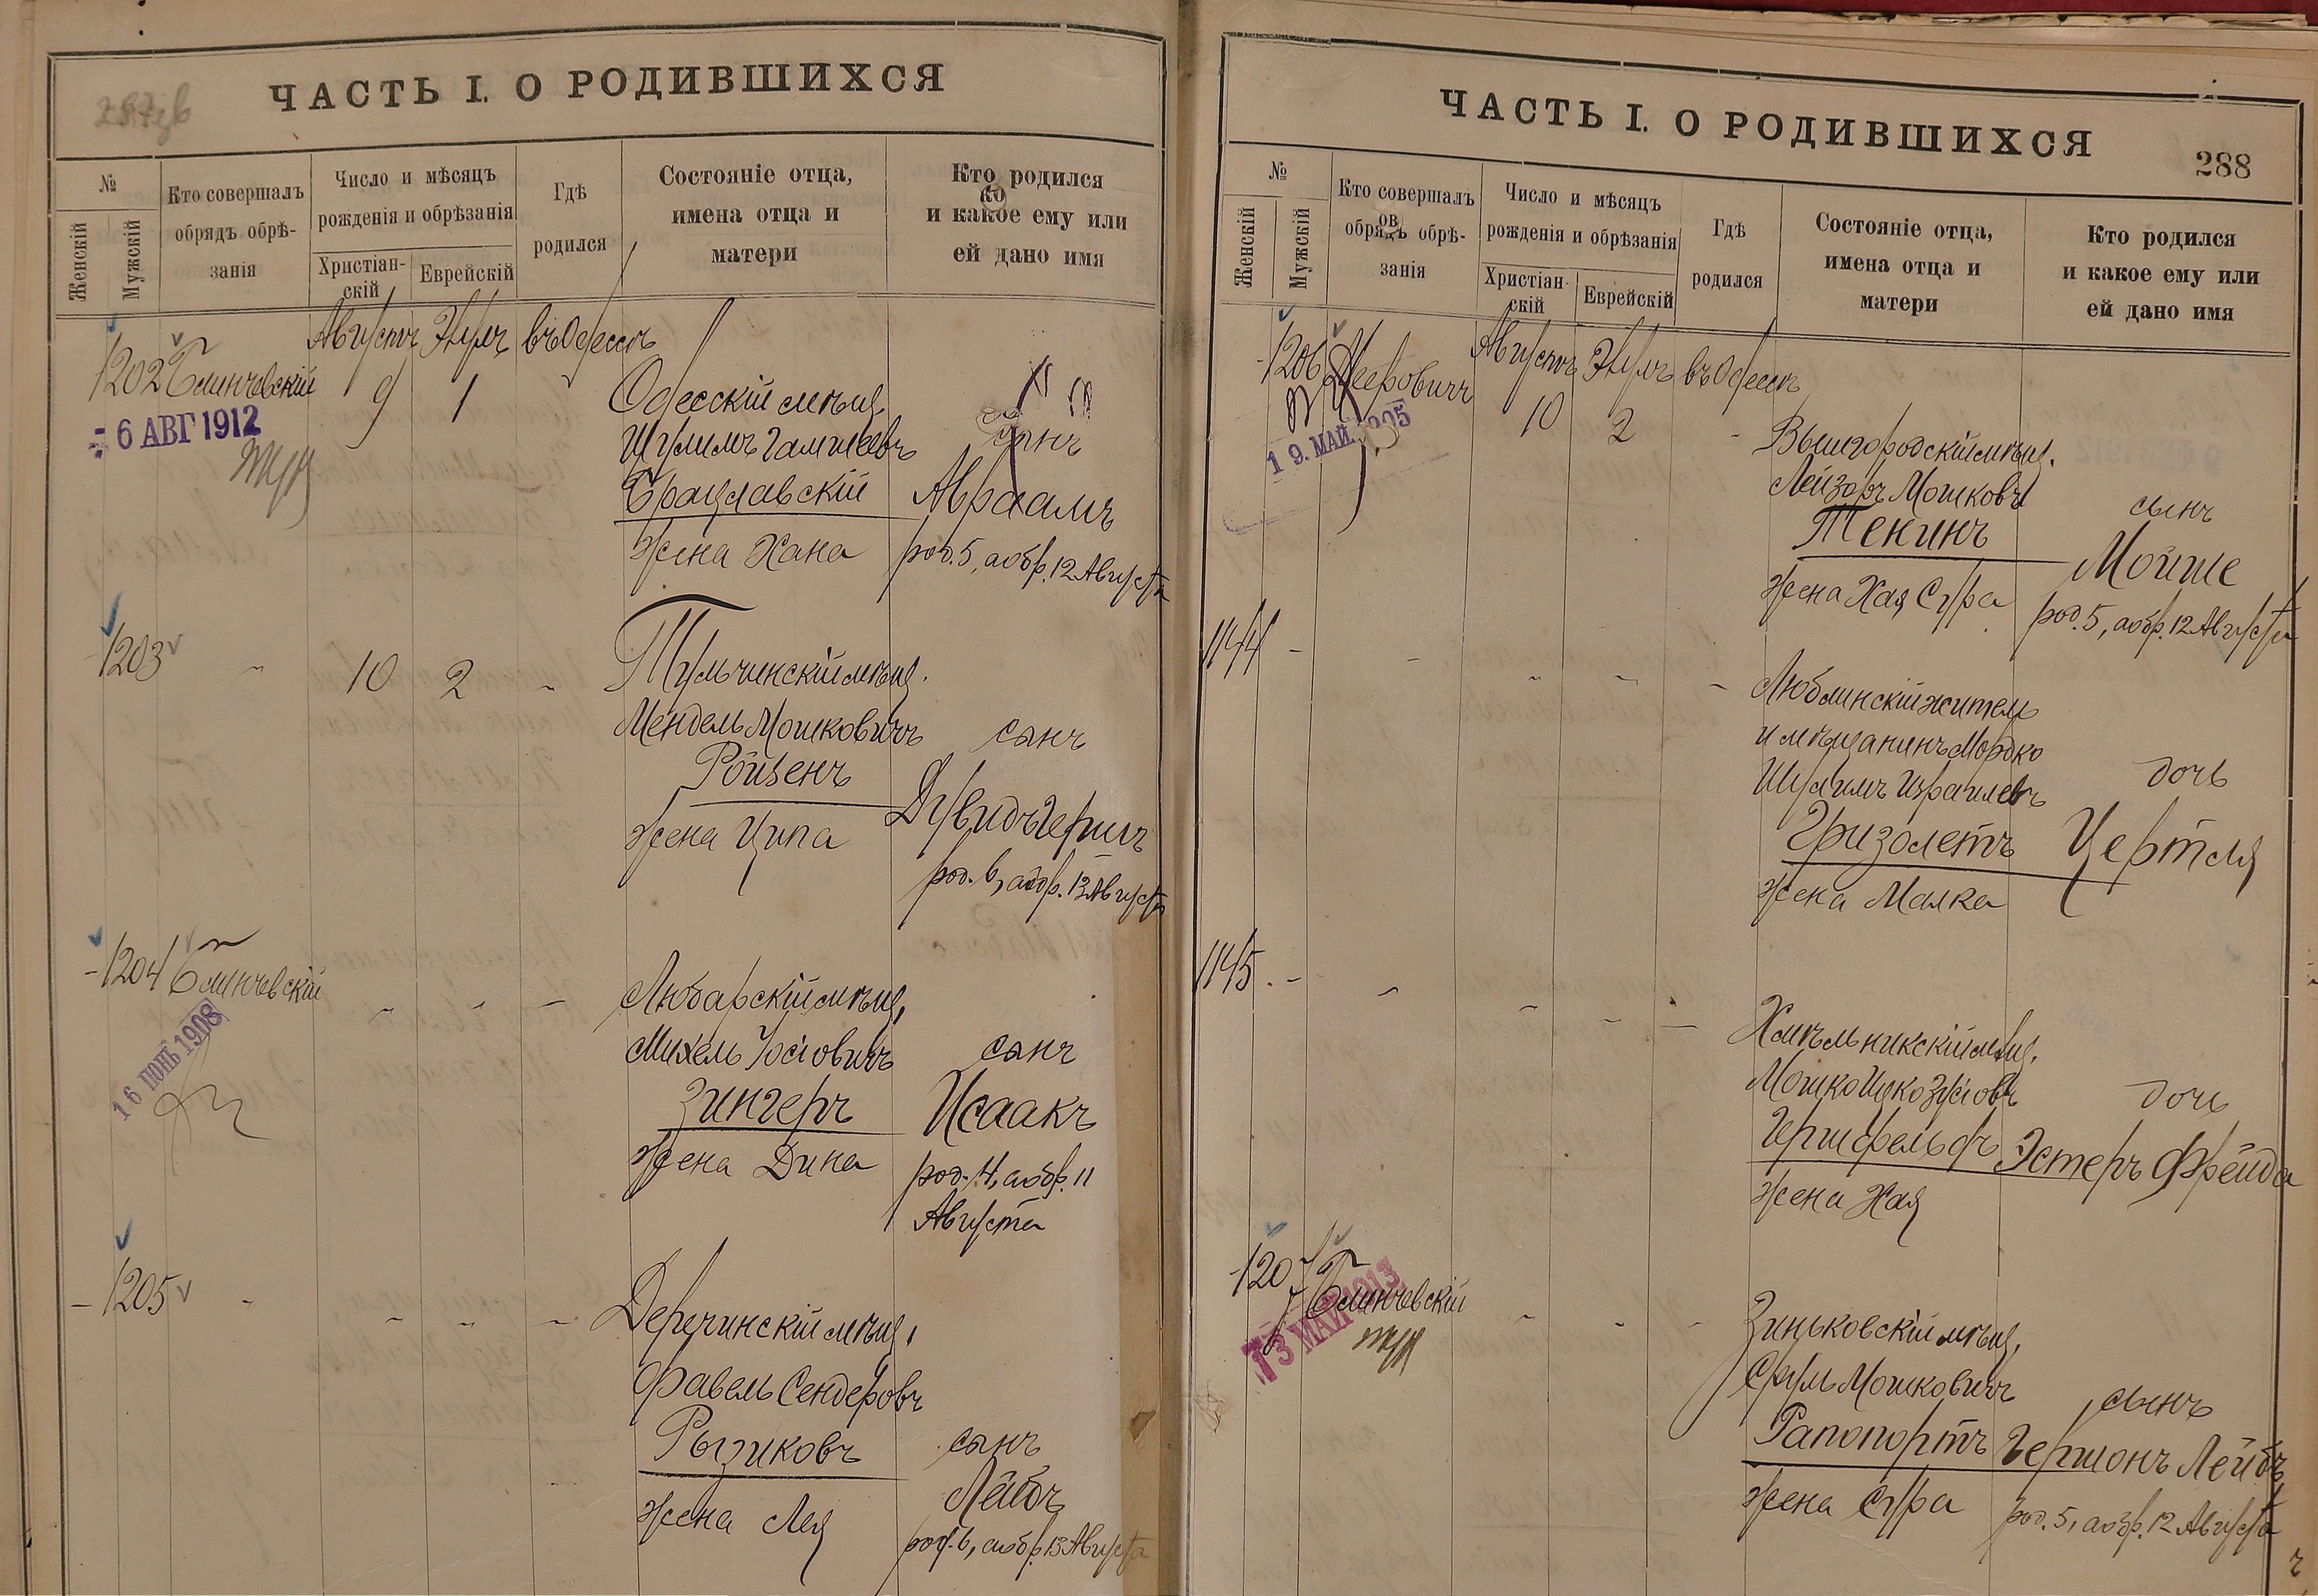 ЧАСТЬ I. О РОДИВШИХСЯ
№
Женскій
Мужскій
Кто совершалъ
обрядъ обрѣ-
занія
Число и мѣсяцъ
рожденія и обрѣзанія
Христіан-
скій
Еврейскій
Гдѣ
родился
Состояніе отца,
имена отца и
матери
Кто родился
и какое ему или
ей дано имя
Августъ Элулъ въ Одессѣ
1202 Блинчевскій 9 1
6 АВГ 1912
Одесскій мѣщ.
Шулимъ
Брацлавскій
жена Хана
сынъ
Авраамъ
род. 5, а обр. 12 Августа
1203 10 2
Тульчинскій мѣщ.
Мендель Мошковичъ
Ройзенъ
жена Ципа
сынъ
Дувидъ Гершъ
род. 6, а обр. 13 Августа
1204 Блинчевскій
16 ІЮНЬ 1908
Любарскій мѣщ.
Михель Іосіовичъ
Зингеръ
жена Дина
сынъ
Исаакъ
род. 4, а обр. 11
Августа
1205
Деречинскій мѣщ.
Фавель Сендеровъ
Рызиковъ
жена Лея
сынъ
Лейбъ
род. 6, а обр. 13 Августа
ЧАСТЬ I. О РОДИВШИХСЯ
288
№
Женскій
Мужскій
Кто совершалъ
обрядъ обрѣ-
занія
Число и мѣсяцъ
рожденія и обрѣзанія
Христіан-
скій
Еврейскій
Гдѣ
родился
Состояніе отца,
имена отца и
матери
Кто родился
и какое ему или
ей дано имя
Августъ Элулъ въ Одессѣ
1206 10 2
19. МАЙ.
Вышгородскій мѣщ.
Лейзоръ Мошковъ
Тенинъ
жена Хая Сура
сынъ
Мойше
род. 5, а обр. 12 Августа
1144
Люблинскій житель
и мѣщанинъ Мордко
Шулимъ Израилевъ
Гризолетъ
жена Малка
дочь
Цертля
1145
Хмѣльникскій мѣщ.
Мошко Ицко Зусіовъ
Гершфельдъ
жена Хая
дочь
Эстеръ Фрейда
1207 Блинчевскій
13 МАЙ 1913
Зиньковскій мѣщ.
Сруль Мошковичъ
Рапопортъ
жена Сура
сынъ
Гершонъ Лейбъ
род. 5, а обр. 12 Августа